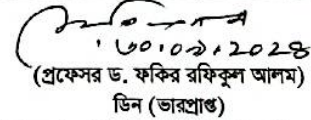 ৩০.০৯.২০২৪
(প্রফেসর ড. ফকির রফিকুল আলম)
ডিন (ভারপ্রাপ্ত)